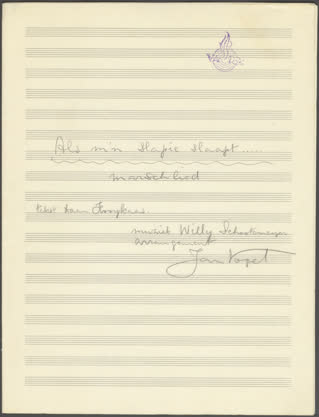 Als m'n Slapie Slaapt.....
marschlied
tekst Daan Hooykaas.
muziek Willy Schootemeyer
arrangement
Jan Vogel